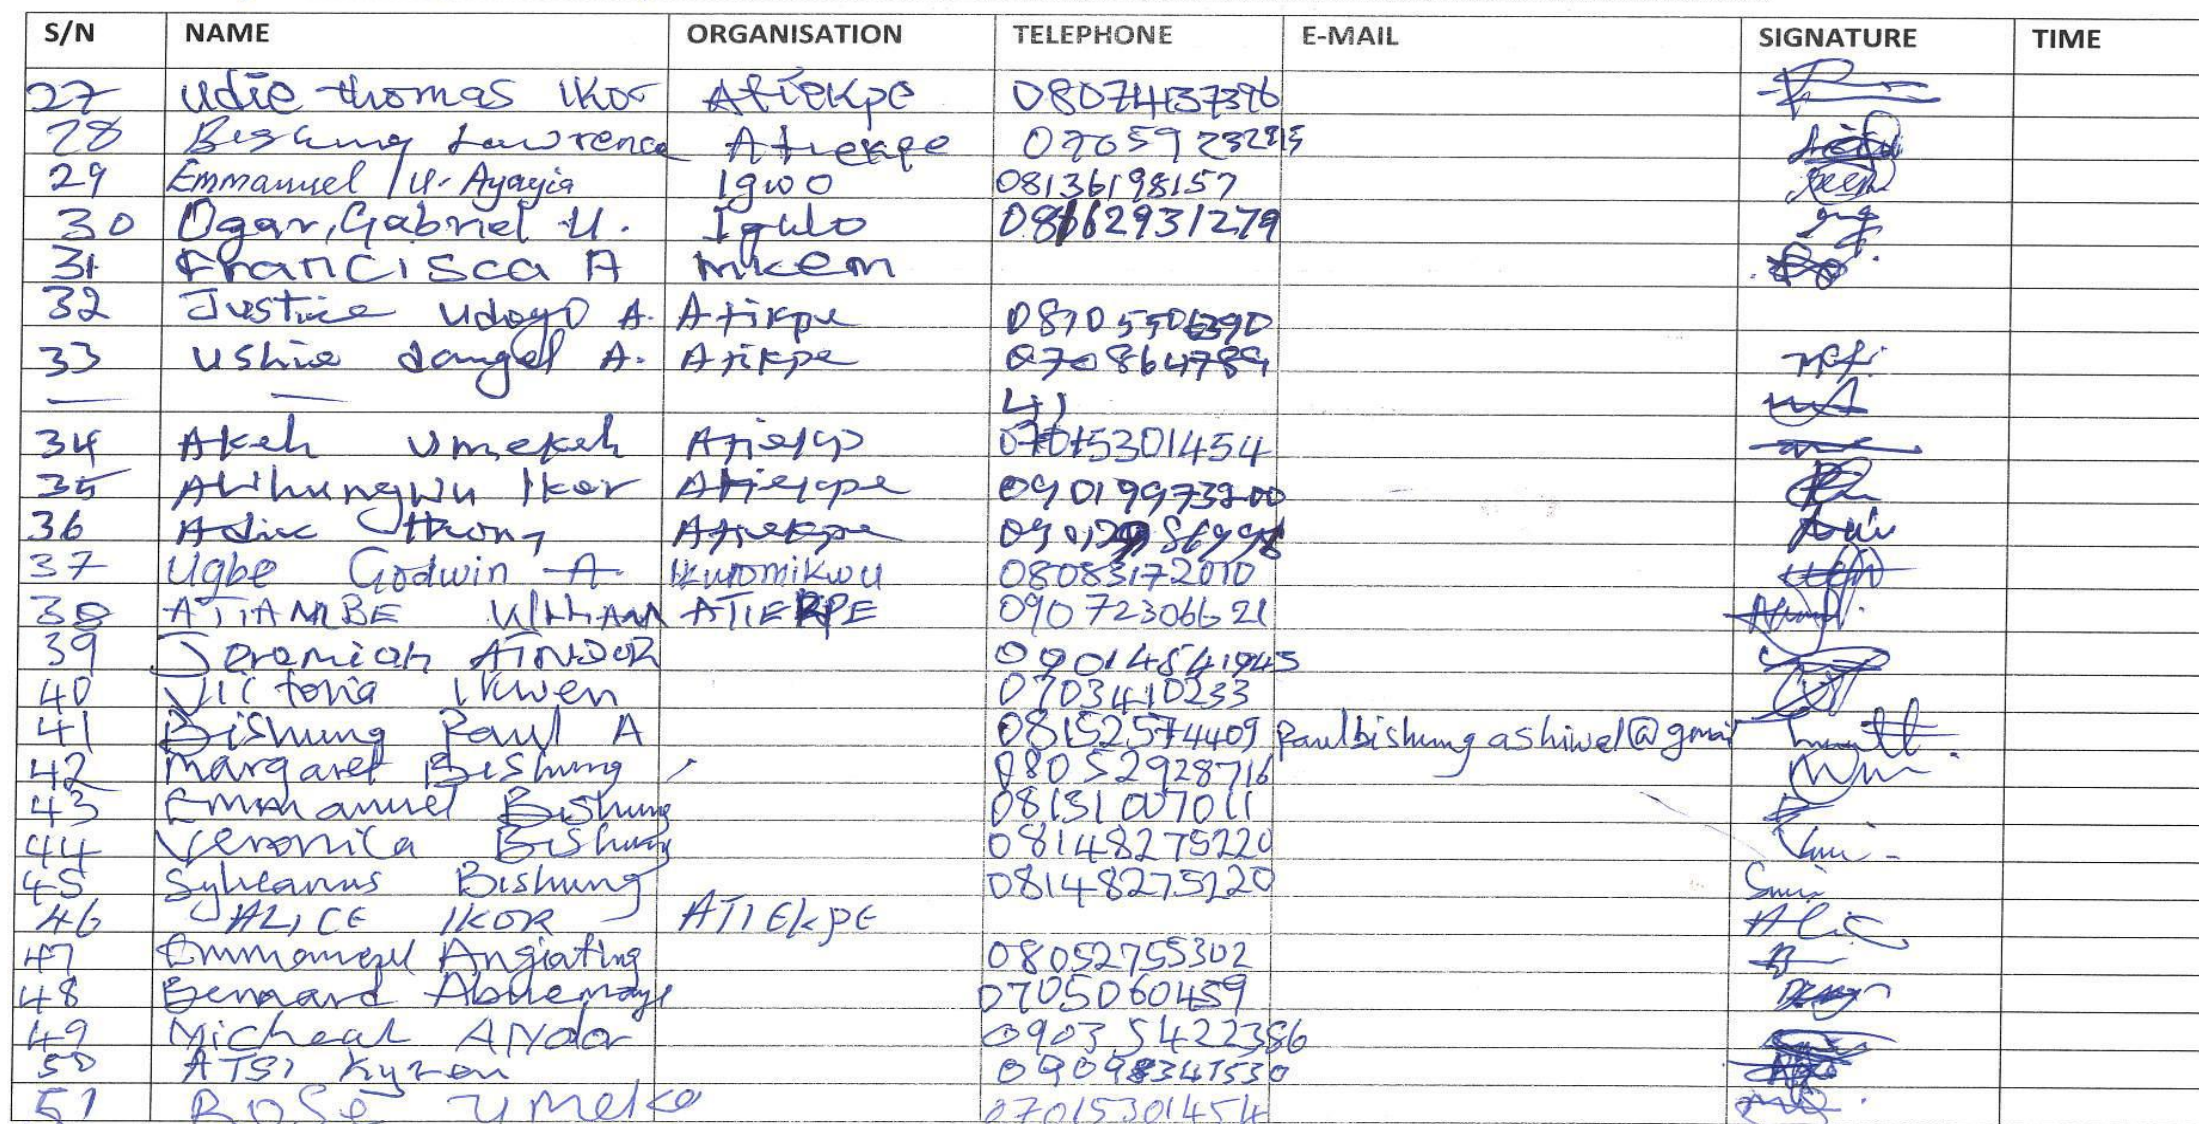 S/N NAME ORGANISATION TELEPHONE E-MAIL SIGNATURE TIME
27 Udie thomas Ikor Atiekpe 08074137396
28 Beshung Lawrence Atiekpe
29 Emmanuel /U. Ayayia Igwo 08136198157
30 Ogar, Gabriel U. Igwo 08162931279
31 Francisca A mkem
32 Justice Udogo A. Atikpe
33 Ushie dangel A. Atikpe 0708664789
— — 41
34 Akeh Umekeh 07015301454
35 Ikor Atiekpe
36 Adie Atiekpe
37 Ugbe Godwin A. Ikuromikwu 08083172010
38 ATIAMBE William ATIEKPE 09072306621
39 Jeremiah ATINDOR 09014541945
40 Victoria Ikwen 0703410233
41 Bishung Paul A 08152574409 Paulbishungashiwel@gmai
42 Margaret Bishung 08052928716
43 Emmanuel Bishung 08131007011
44 Veronica Bishung 08148275220
45 Sylvanus Bishung 08148275220
46 ALICE IKOR ATIEkpE Alic
47 Emmanuel Angiating 08052755302
48 Benaard Abuemaye 0705060459
49 Micheal AYdor 09035422386
50 ATSI Kyzon 09098347530
51 Rose Umeke 07015301454